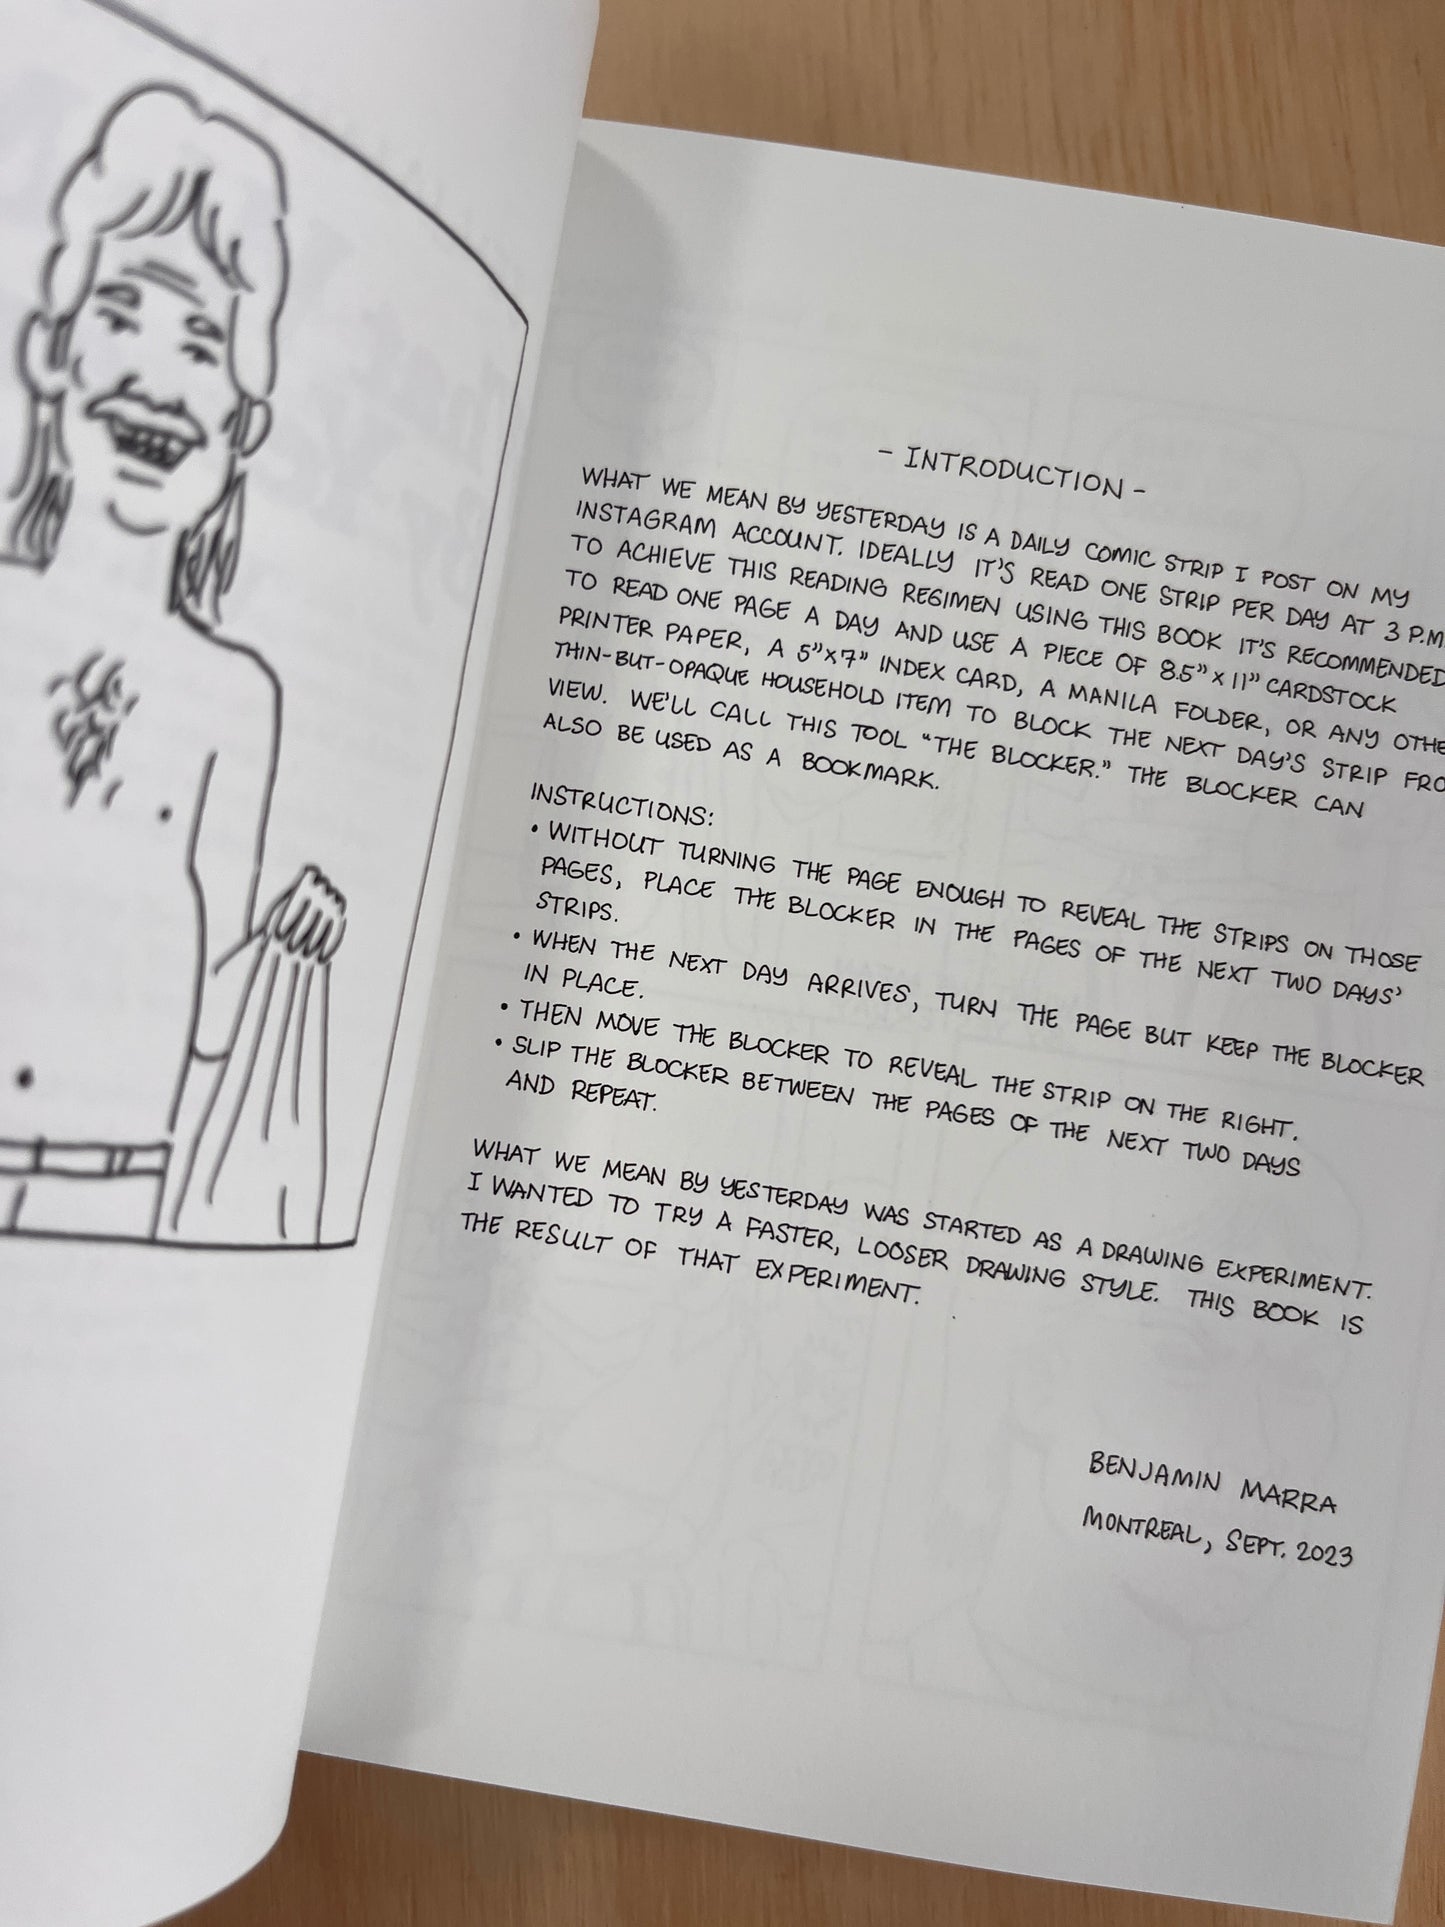 - INTRODUCTION -
WHAT WE MEAN BY YESTERDAY IS A DAILY COMIC STRIP I POST ON MY
INSTAGRAM ACCOUNT. IDEALLY IT'S READ ONE STRIP PER DAY AT 3 P.M.
TO ACHIEVE THIS READING REGIMEN USING THIS BOOK IT'S RECOMMENDED
TO READ ONE PAGE A DAY AND USE A PIECE OF 8.5" x 11" CARDSTOCK
PRINTER PAPER, A 5"x7" INDEX CARD, A MANILA FOLDER, OR ANY OTHE
THIN-BUT-OPAQUE HOUSEHOLD ITEM TO BLOCK THE NEXT DAY'S STRIP FRO
VIEW. WE'LL CALL THIS TOOL "THE BLOCKER." THE BLOCKER CAN
ALSO BE USED AS A BOOKMARK.
INSTRUCTIONS:
• WITHOUT TURNING THE PAGE ENOUGH TO REVEAL THE STRIPS ON THOSE
PAGES, PLACE THE BLOCKER IN THE PAGES OF THE NEXT TWO DAYS'
STRIPS.
• WHEN THE NEXT DAY ARRIVES, TURN THE PAGE BUT KEEP THE BLOCKER
IN PLACE.
• THEN MOVE THE BLOCKER TO REVEAL THE STRIP ON THE RIGHT.
• SLIP THE BLOCKER BETWEEN THE PAGES OF THE NEXT TWO DAYS
AND REPEAT.
WHAT WE MEAN BY YESTERDAY WAS STARTED AS A DRAWING EXPERIMENT.
I WANTED TO TRY A FASTER, LOOSER DRAWING STYLE. THIS BOOK IS
THE RESULT OF THAT EXPERIMENT.
BENJAMIN MARRA
MONTREAL, SEPT. 2023